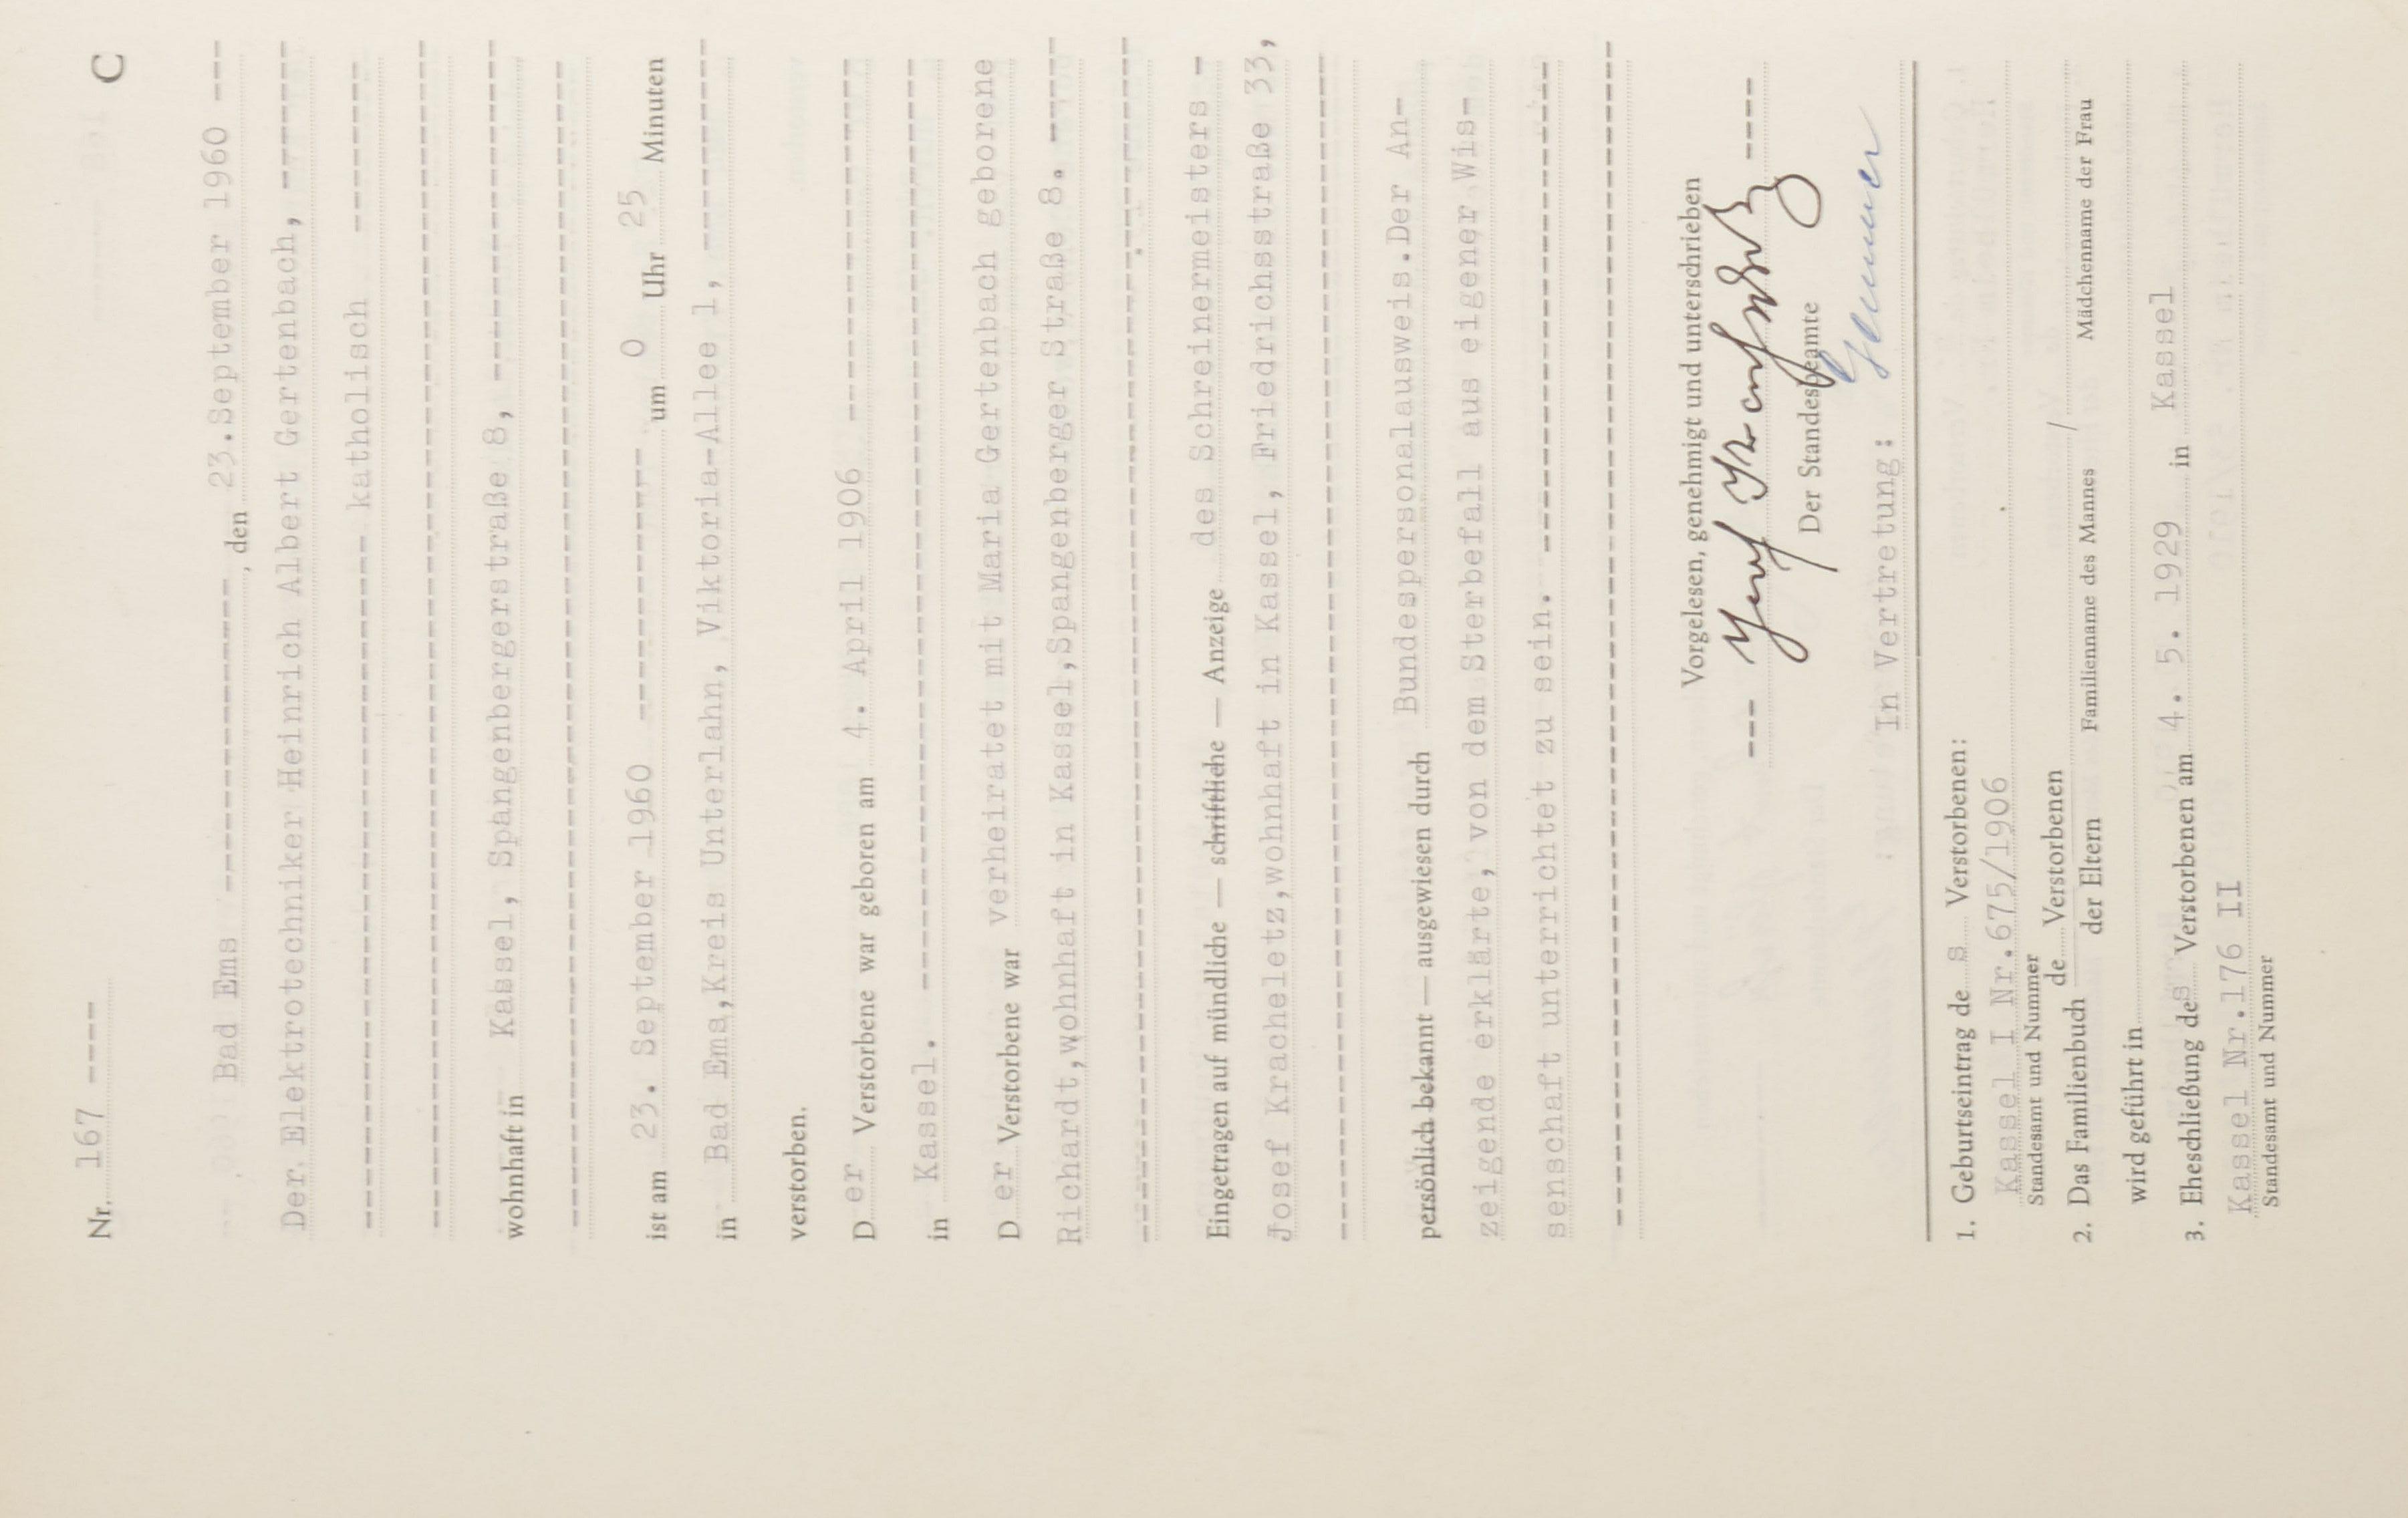 Nr. 167 ---- C
Bad Ems ----------------, den 23.September 1960 ---
Der Elektrotechniker Heinrich Albert Gertenbach, -------
---------------------------- katholisch --------
wohnhaft in Kassel, Spangenbergerstraße 8, ---------------
ist am 23. September 1960 ------------- um 0 Uhr 25 Minuten
in Bad Ems,Kreis Unterlahn, Viktoria-Allee 1, ----------
verstorben.
D er Verstorbene war geboren am 4. April 1906 ----------------
in Kassel. ----------------------------------------
D er Verstorbene war verheiratet mit Maria Gertenbach geborene
Richardt,wohnhaft in Kassel,Spangenberger Straße 8. -----
Eingetragen auf mündliche — schriftliche — Anzeige des Schreinermeisters -
Josef Kracheletz,wohnhaft in Kassel, Friedrichsstraße 33,
persönlich bekannt — ausgewiesen durch Bundespersonalausweis.Der An-
zeigende erklärte, von dem Sterbefall aus eigener Wis-
senschaft unterrichtet zu sein. -----------------------
Vorgelesen, genehmigt und unterschrieben
--- Josef Kracheletz ----
Der Standesbeamte
In Vertretung:
1. Geburtseintrag de s Verstorbenen:
Kassel I Nr.675/1906
Standesamt und Nummer
2. Das Familienbuch de Verstorbenen / der Eltern /
Familienname des Mannes Mädchenname der Frau
wird geführt in
3. Eheschließung des Verstorbenen am 4. 5. 1929 in Kassel
Kassel Nr.176 II
Standesamt und Nummer